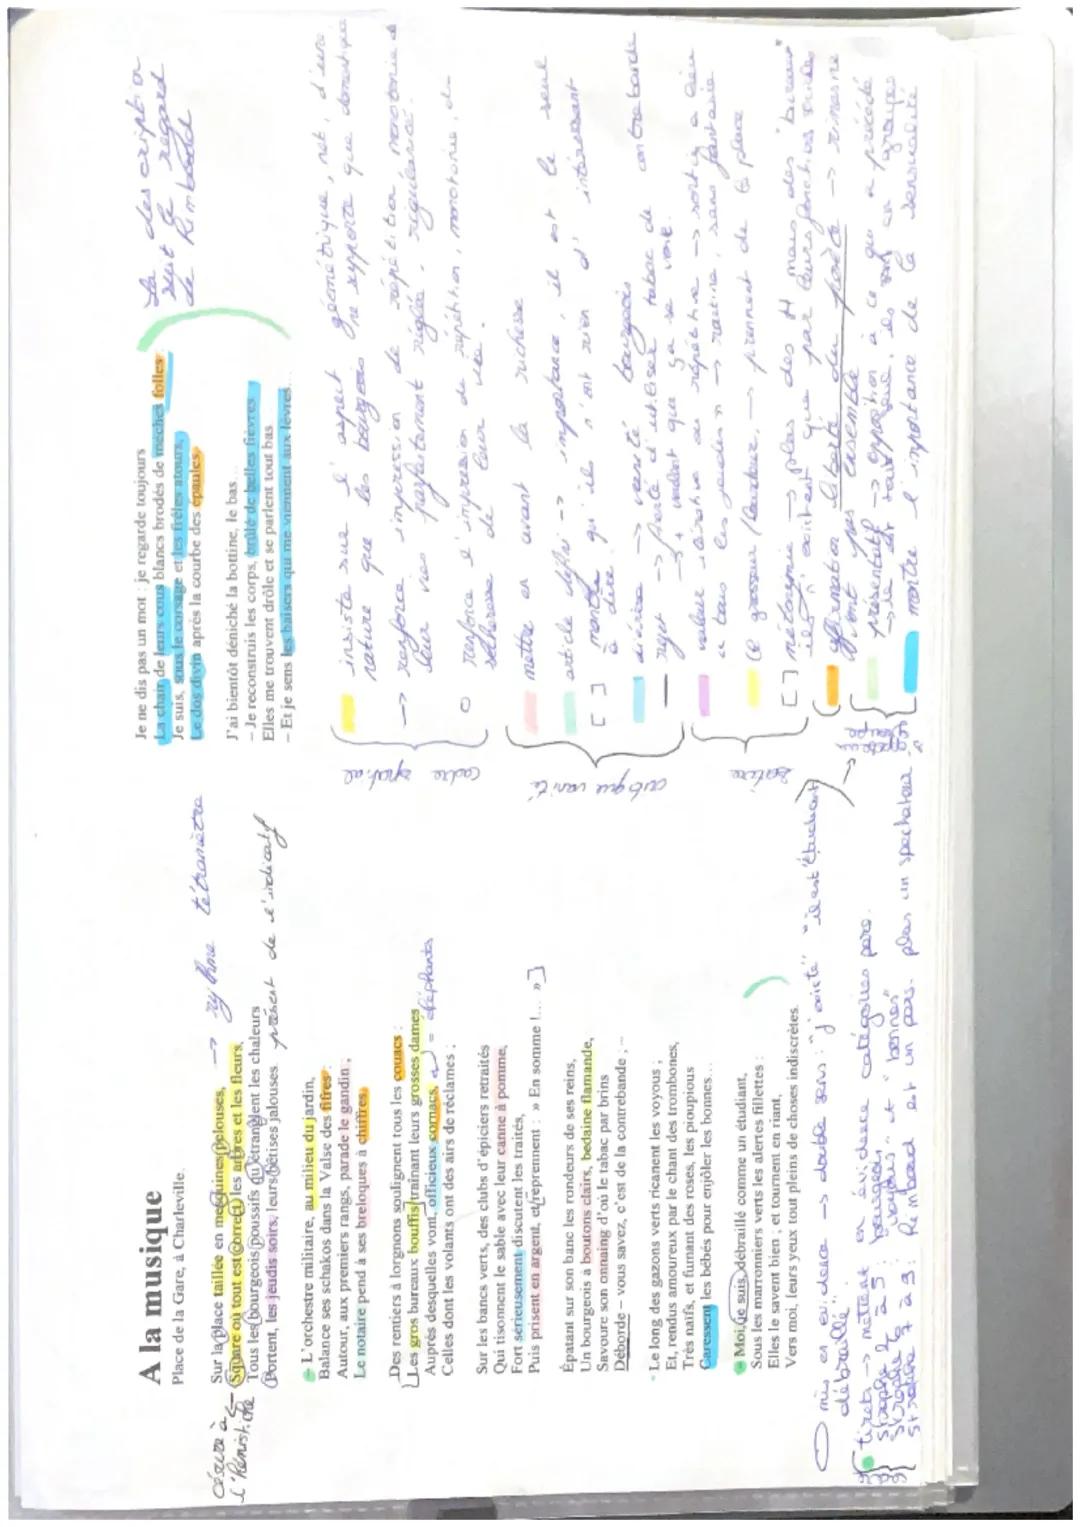 A la musique
Place de la Gare, à Charleville.
césure à l'hémistiche
Sur la place taillée en mesquines pelouses, → rythme tétramètre
Square où tout est correct, les arbres et les fleurs,
Tous les bourgeois poussifs qu'étranglent les chaleurs
Portent, les jeudis soirs, leurs bêtises jalouses. présent de l'indicatif
– L'orchestre militaire, au milieu du jardin,
Balance ses schakos dans la Valse des fifres :
Autour, aux premiers rangs, parade le gandin ;
Le notaire pend à ses breloques à chiffres.
Des rentiers à lorgnons soulignent tous les couacs :
Les gros bureaux bouffis traînant leurs grosses dames
Auprès desquelles vont, officieux cornacs, = éléphants
Celles dont les volants ont des airs de réclames ;
Sur les bancs verts, des clubs d'épiciers retraités
Qui tisonnent le sable avec leur canne à pomme,
Fort sérieusement discutent les traités,
Puis prisent en argent, et reprennent : » En somme !... »]
Épatant sur son banc les rondeurs de ses reins,
Un bourgeois à boutons clairs, bedaine flamande,
Savoure son onnaing d'où le tabac par brins
Déborde – vous savez, c'est de la contrebande ; –
Le long des gazons verts ricanent les voyous ;
Et, rendus amoureux par le chant des trombones,
Très naïfs, et fumant des roses, les pioupious
Caressent les bébés pour enjôler les bonnes...
– Moi, je suis, débraillé comme un étudiant,
Sous les marronniers verts les alertes fillettes :
Elles le savent bien ; et tournent en riant,
Vers moi, leurs yeux tout pleins de choses indiscrètes.
mis en évidence → double sens : "j'existe" "il est étudiant débraillé"
tirets → mettent en évidence catégories pers.
strophe 2 à 5 : bourgeois
strophe 6 : "voyous" et "bonnes"
strophe 7 à 9 : Rimbaud est un pers. plus un spectateur
Je ne dis pas un mot : je regarde toujours
La chair de leurs cous blancs brodés de mèches folles :
Je suis, sous le corsage et les frêles atours,
Le dos divin après la courbe des épaules.
La description
suit le regard
de Rimbaud
J'ai bientôt déniché la bottine, le bas...
– Je reconstruis les corps, brûlé de belles fièvres.
Elles me trouvent drôle et se parlent tout bas...
– Et je sens les baisers qui me viennent aux lèvres...
cadre spatial
insiste sur l'aspect géométrique, net, d'une
nature que les bourgeois ne supporte que domestiquée
→ renforce impression de répétition, monotonie de
leur vie parfaitement réglée, régularité.
renforce l'impression de répétition, monotonie, de
sécheresse de leur vie.
critique vanité
mettre en avant la richesse
article défini → importance, il est le seul
[ ] montre qu'ils n'ont rien d'intéressant
à dire.
diérèse → vanité bourgeois
rejet → fierté d'utiliser tabac de contrebande
→ + voulant que ça se voit.
satire
valeur itérative ou répétitive → sortie a lieu
tous les jeudis → routine, sans fantaisie
grosseur / lourdeur → prennent de la place
[ ] métonymie → plus des H mais des "bureaux"
ils n'existent que par leurs fonctions sociales
affirmation liberté du poète → rimes ne
vont pas ensemble
présentatif → opposition à ce qui a précédé
montre l'importance de la sensualité